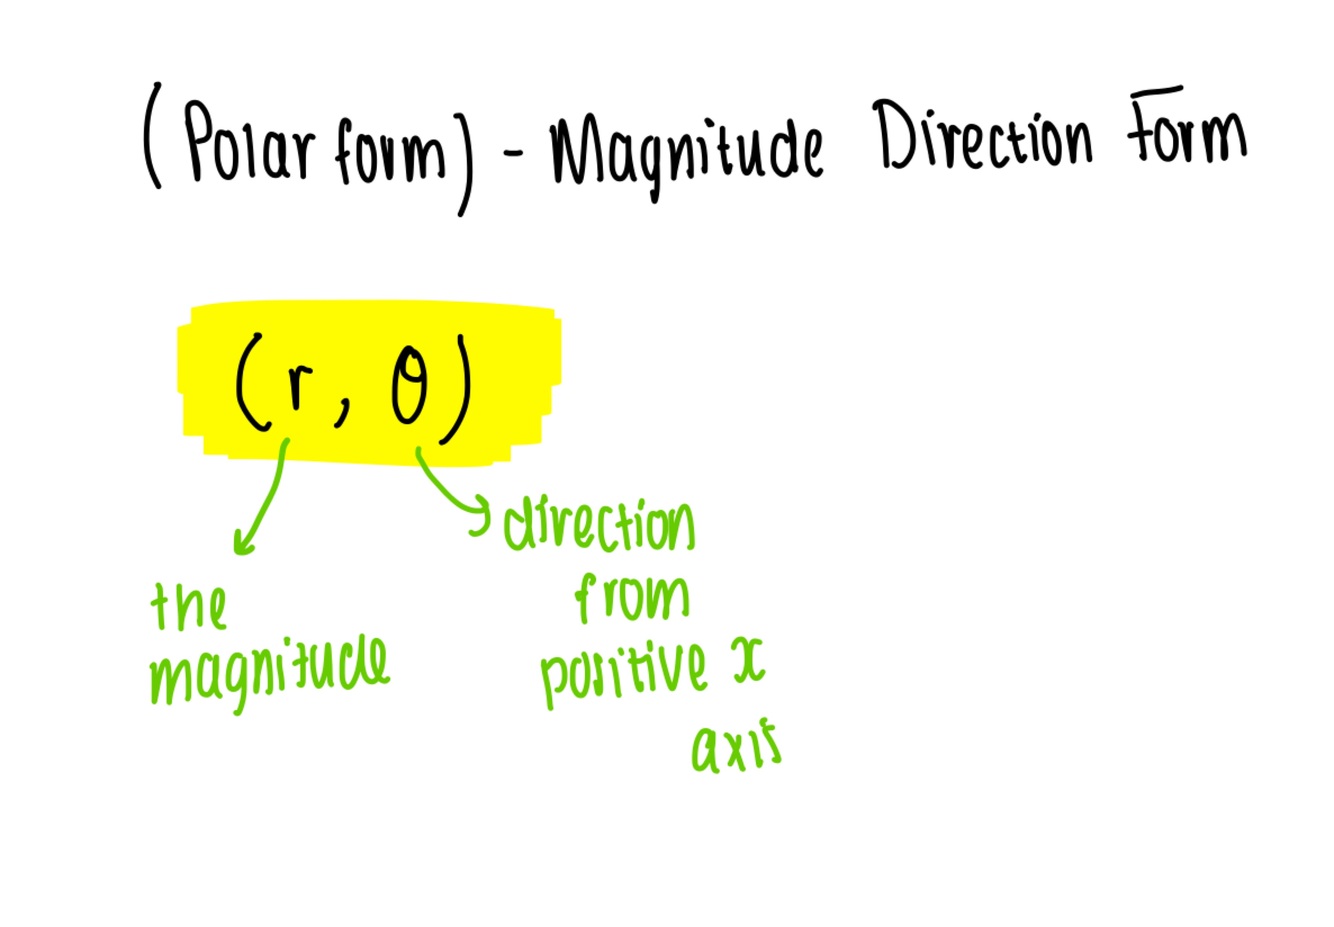 (Polar form) - Magnitude Direction Form
(r, θ)
the
magnitude
direction
from
positive x
axis